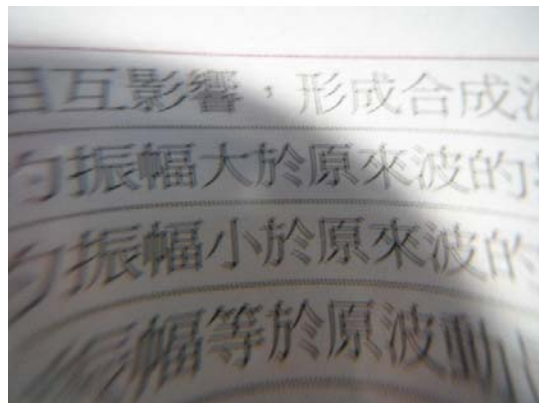 互影響，形成合成
振幅大於原來波的
振幅小於原來波的
振幅等於原波動